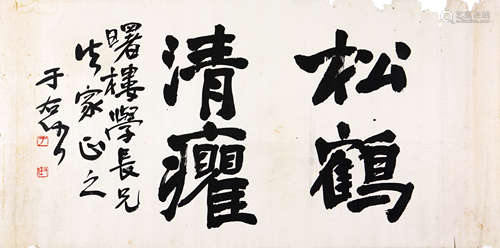 松鶴
清癯
曙樓學長兄
方家正之
于右任